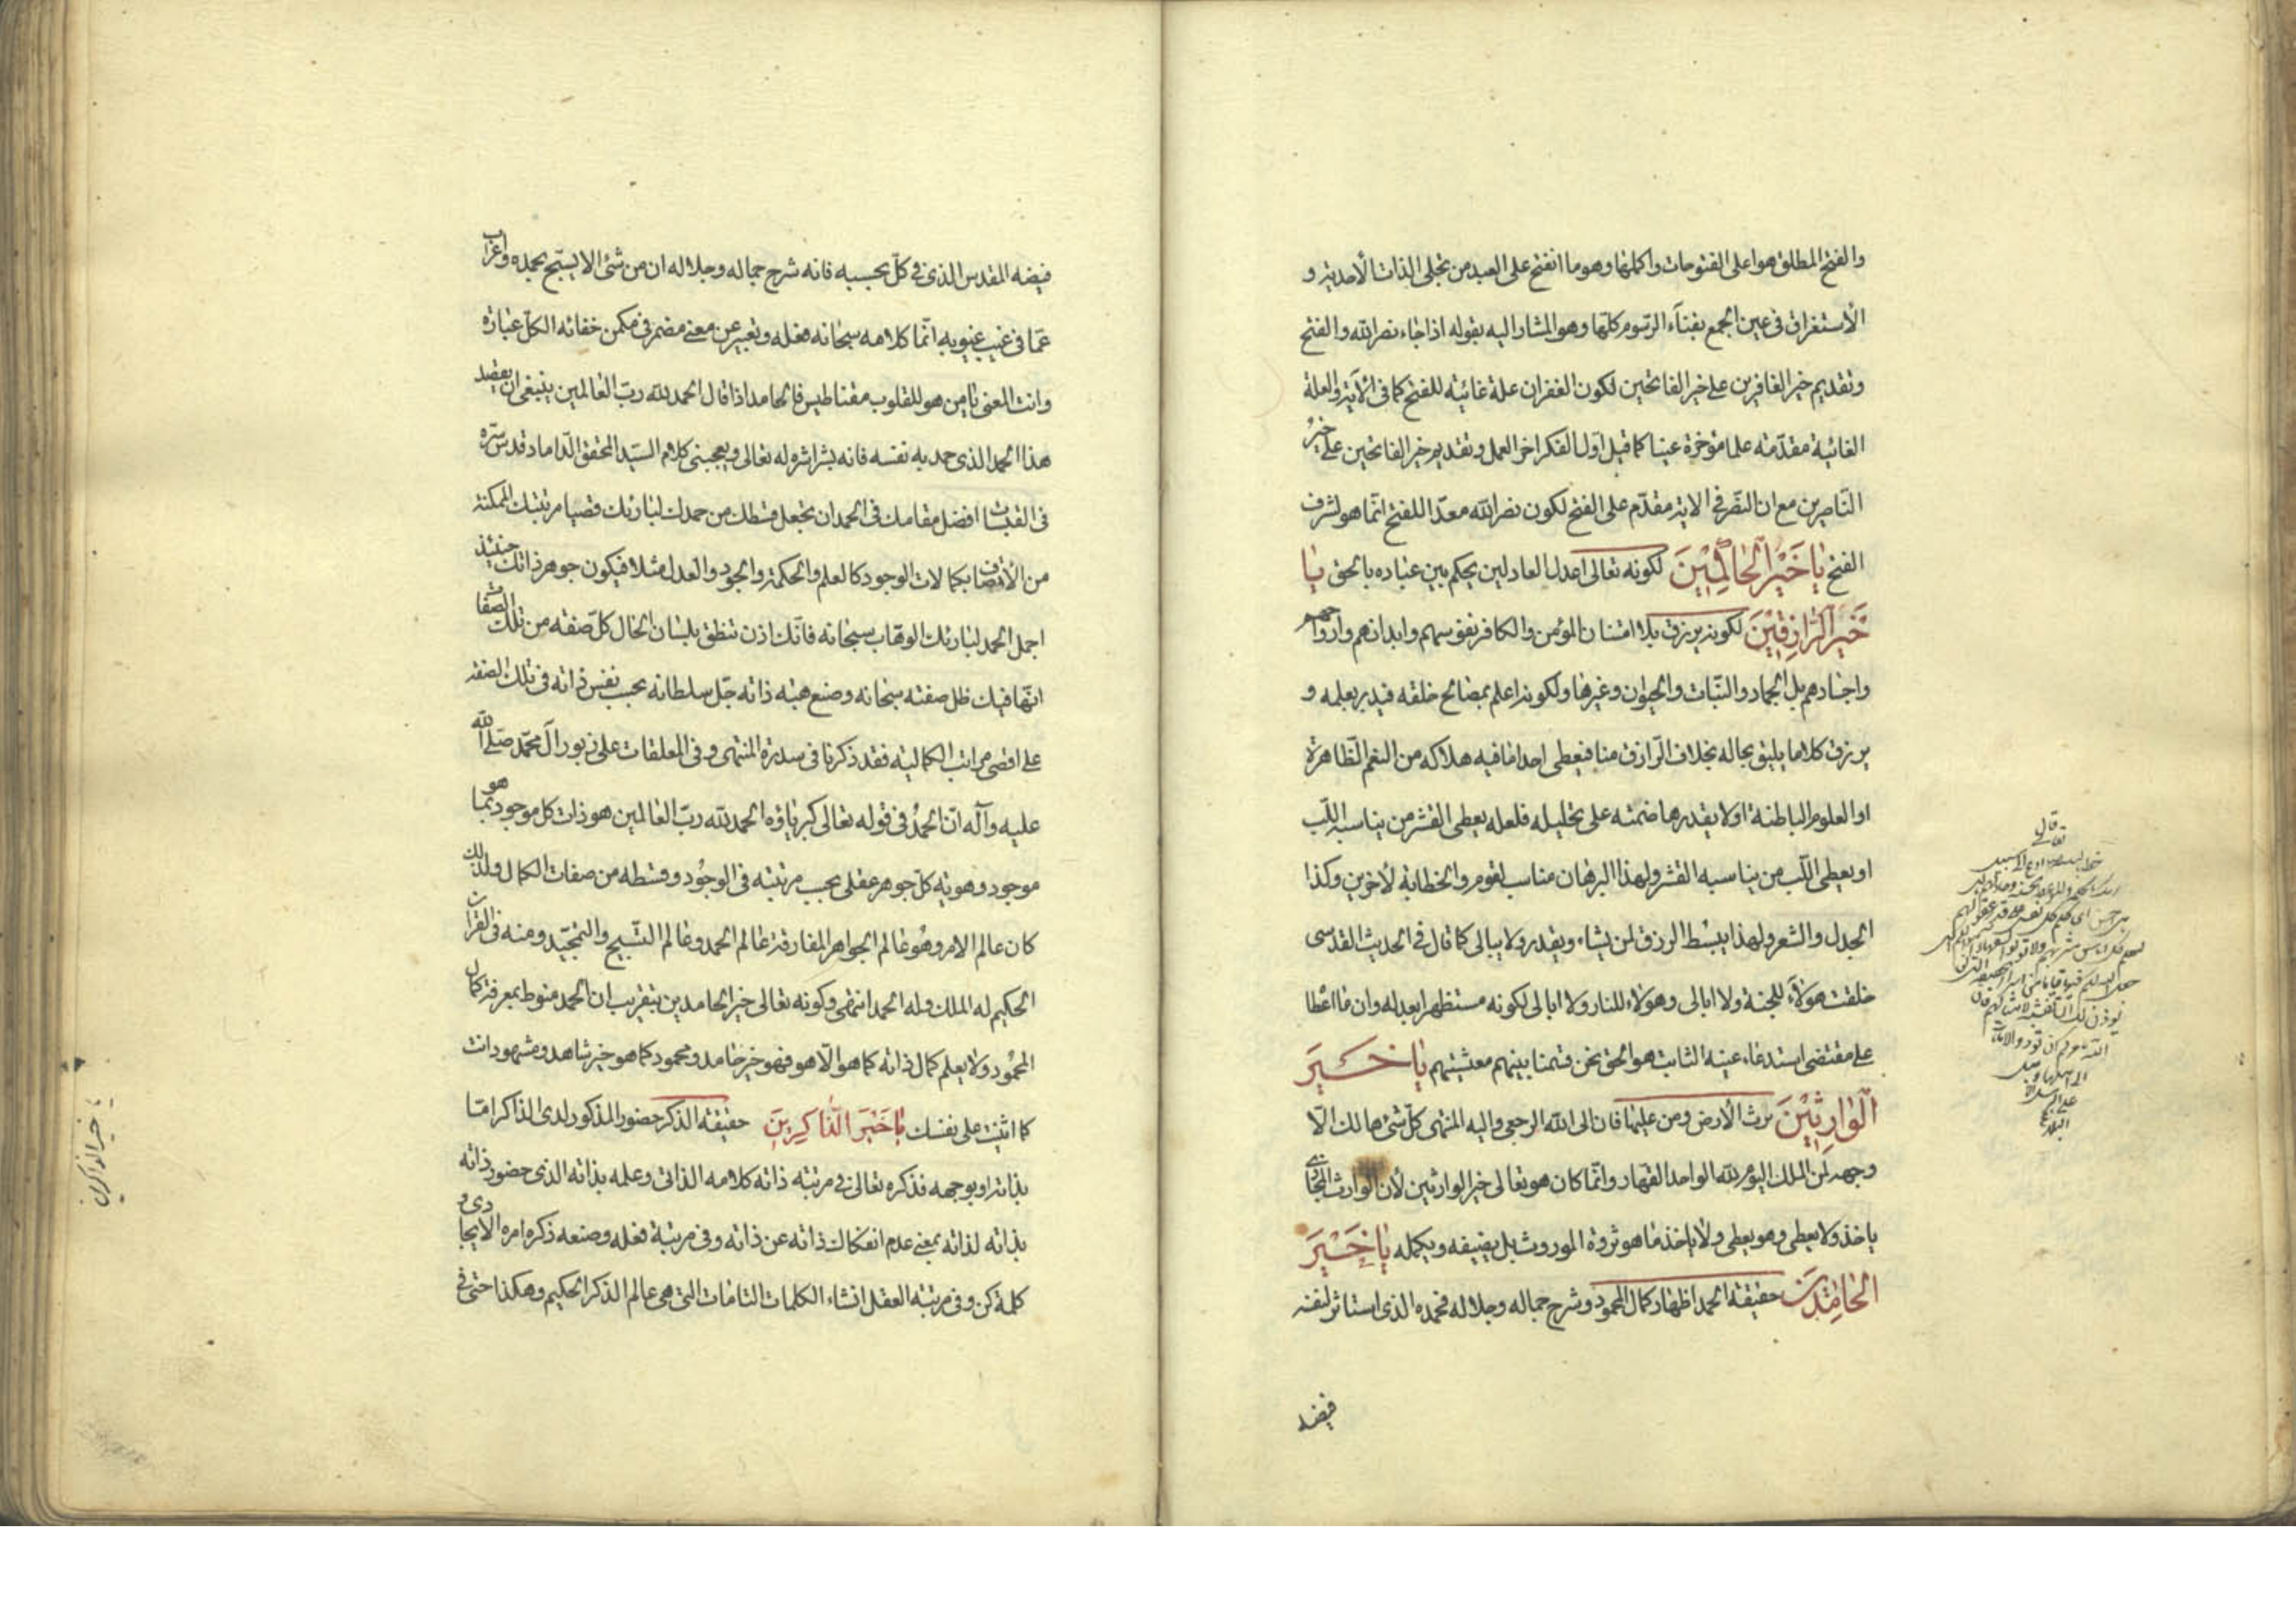 والفتح المطلق هو اعلى الفتوحات واكملها وهو ما انفتح على العبد من تجلى الذات الأحدية و
الأستغراق فى عين الجمع بفناء الرسوم كلها وهو المشار اليه بقوله اذا جاء نصر الله والفتح
وتقديم خير الغافرين على خير الفاتحين لكون الغفران علة غائية للفتح كما فى الآية والعلة
الغائية مقدمة علما مؤخرة عينا كما قيل اول الفكر اخر العمل وتقديم خير الفاتحين على خير
الناصرين مع ان النصر فى الاية مقدم على الفتح لكون نصر الله معدا للفتح انما هو لشرف
الفتح يا خَيْرَ الْحاكِمِيْنَ لكونه تعالى اعدل العادلين يحكم بين عباده بالحق يا
خَيْرَ الرّازِقِيْنَ لكونه يرزق بلا امتنان المؤمن والكافر نفوسهم وابدانهم وارواحهم
واجسادهم بل الجماد والنبات والحيوان وغيرها ولكونه اعلم بمصالح خلقه فيدبر بعلمه و
يرزق كلا ما يليق بحاله بخلاف الرازق منا فيعطى احدا ما فيه هلاكه من النعم الظاهرة
او العلوم الباطنة او لا يقدر هاضمته على تحليله فلعله يعطى القشر من يناسبه اللب
او يعطى اللب من يناسبه القشر ولهذا البرهان مناسب لقوم والخطابة لأخرين وكذا
الجدل والشعر ولهذا يبسط الرزق لمن يشاء ويقدر ولا يبالى كما قال فى الحديث القدسى
خلقت هؤلاء للجنة ولا ابالى وهؤلاء للنار ولا ابالى لكونه مستظهرا بعدله وان ما اعطا
على مقتضى استدعاء عينه الثابت هو الحق نحن قسمنا بينهم معيشتهم يا خَيْرَ
الْوارِثِيْنَ يرث الأرض ومن عليها فان الى الله الرجعى واليه المنتهى كل شئ هالك الا
وجهه لمن الملك اليوم لله الواحد القهار وانما كان هو تعالى خير الوارثين لأن الوارث المجازى
ياخذ ولا يعطى وهو يعطى ولا ياخذ ما هو ثروة الموروث بل يضيفه ويكمله يا خَيْرَ
الْحامِدِيْنَ حقيقة الحمد اظهار كمال المحمود وشرح جماله وجلاله فحمده الذى استاثر لنفسه
فيضه
قال
تعالى
فيضه المقدس الذى فى كل بحسبه فانه شرح جماله وجلاله ان من شئ الا يسبح بحمده واعراب
عما فى غيب غيوبه انما كلامه سبحانه فعله وتعبير عن معنى مضمر فى مكمن خفائه الكل عبارة
وانت المعنى يا من هو للقلوب مقناطيس فالحامد اذا قال الحمد لله رب العالمين ينبغى ان يقصد
هذا الحمد الذى حمد به نفسه فانه بشراشره له تعالى ويعجبنى كلام السيد المحقق الداماد قدس سره
فى القبسات افضل مقامك فى الحمد ان تجعل قسطك من حمدك لبارئك قصيا مرتبتك الممكنة
من الأتصاف بكمالات الوجود كالعلم والحكمة والجود والعدل مثلا فيكون جوهر ذاتك حينئذ
اجمل الحمد لبارئك الوهاب سبحانه فانك اذن تنطق بلسان الحال كل صفة من تلك الصفات
انها فيك ظل صفته سبحانه وصنع هبة ذاته جل سلطانه بحسب نفس ذاته فى تلك الصفة
على اقصى مراتب الكمالية فقد ذكرنا فى سدرة المنتهى وفى المعلقات على زبور آل محمد صلى الله
عليه وآله ان الحمد فى قوله تعالى كبرياؤه الحمد لله رب العالمين هو ذات كل موجود بما هو
موجود وهوية كل جوهر عقلى بحسب مرتبته فى الوجود وقسطه من صفات الكمال ولذلك
كان عالم الامر وهو عالم الجواهر المفارقة عالم الحمد وعالم التسبيح والتمجيد ومنه فى القران
الحكيم له الملك وله الحمد انتهى وكونه تعالى خير الحامدين بتقريب ان الحمد منوط بمعرفة كمال
المحمود ولا يعلم كمال ذاته كما هو الا هو فهو خير حامد ومحمود كما هو خير شاهد ومشهود انت
كما اثنيت على نفسك يا خَيْرَ الذّاكِرِيْنَ حقيقة الذكر حضور المذكور لدى الذاكر اما
بذاته او بوجهه فذكره تعالى فى مرتبة ذاته كلامه الذاتى وعلمه بذاته الذى حضور ذاته
بذاته لذاته بمعنى عدم انفكاك ذاته عن ذاته وفى مرتبة فعله وصنعه ذكره امره الايجادى و
كلمة كن وفى مرتبة العقل انشاء الكلمات التامات التى هى عالم الذكر الحكيم وهكذا حتى فى
يا خير الذاكرين